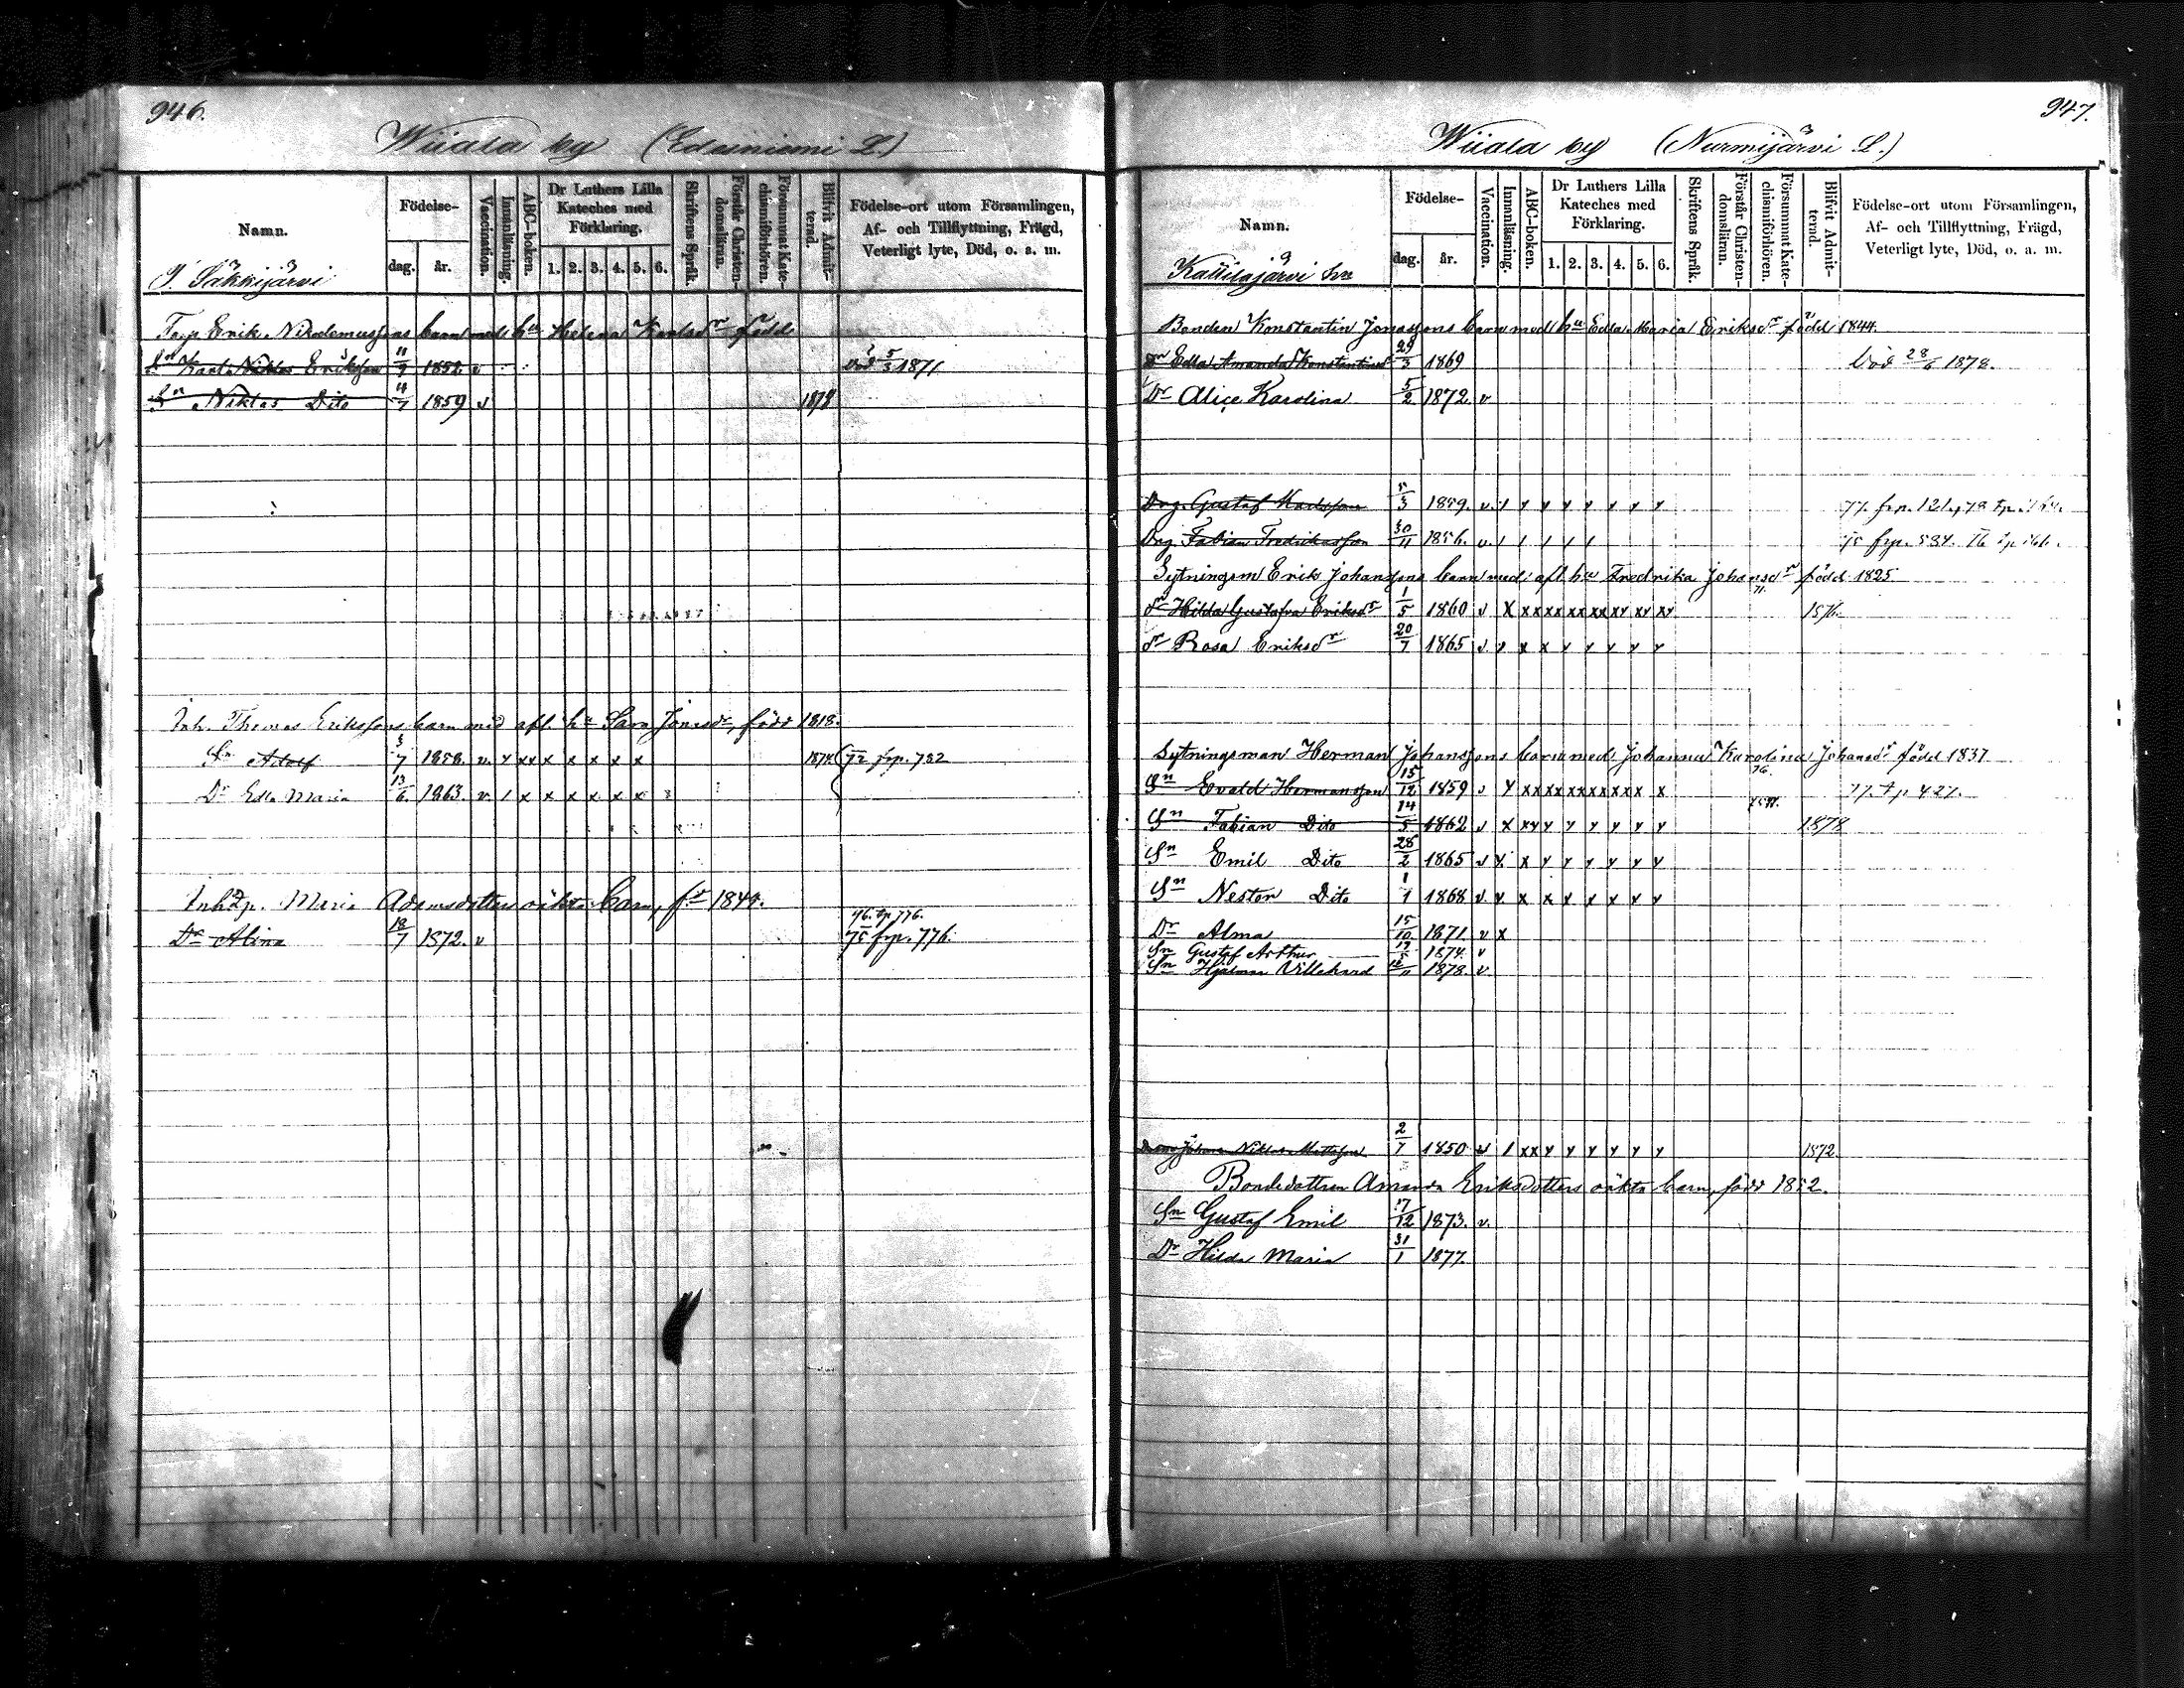 946.
Wiiala by (Edesniemi L.)
Namn.
Födelse-
dag.
år.
Vaccination.
Innanläsning.
ABC-boken.
Dr Luthers Lilla Kateches med Förklaring.
1. 2. 3. 4. 5. 6.
Skriftens Språk.
Förstår Christendomsläran.
Försummat Katechismiförhören.
Blifvit Admitterad.
Födelse-ort utom Församlingen, Af- och Tillflyttning, Frägd, Veterligt lyte, Död, o. a. m.
Säkkijärvi
Torp Erik Nikodemussons barn med hu Helena Karlsdr född
Sn Karl Niklas Eriksson 11/9 1852 v död 5/3 1871
Sn Niklas Dito 4/7 1859 v 1878
Inh. Thomas Erikssons barn med afl. hu Sara Jonasdr, född 1818.
Sn Adolf 3/7 1858. v. y xx x x x x x 1874 72 frp. 782
Dr Edla Maria 13/6. 1863. v. 1 x x x x x x
Inh. Maria Adamsdotters oäkta barn, f. 1844.
76. tp 776.
Dr Alina 18/7 1872. v 75 frp. 776.
947.
Wiiala by (Nurmijärvi L.)
Namn.
Födelse-
dag.
år.
Vaccination.
Innanläsning.
ABC-boken.
Dr Luthers Lilla Kateches med Förklaring.
1. 2. 3. 4. 5. 6.
Skriftens Språk.
Förstår Christendomsläran.
Försummat Katechismiförhören.
Blifvit Admitterad.
Födelse-ort utom Församlingen, Af- och Tillflyttning, Frägd, Veterligt lyte, Död, o. a. m.
Kattilajärvi hn
Bonden Konstantin Jonassons barn med hu Edla Maria Eriksdr född 1844.
Dr Edla Amanda Konstantinsdr 29/3 1869 Död 28/6 1878.
Dr Alice Karolina 5/2 1872 v
Drg. Gustaf Karlsson 5/3 1859. v. 1 y y y y y y y 77. frp. 78 tp.
Drg Fabian Fredriksson 30/11 1856. v. 1 1 1 1 1 75 frp. 584. 76 tp
Sytningsm Erik Johanssons barn med afl hu Fredrika Johansdr född 1825
dr Hilda Gustafva Eriksdr 1/5 1860 v x xx xx xx xx xy xy xy 71. 1876
dr Rosa Eriksdr 20/7 1865 v. v x x y y y y y
Sytningsman Herman Johanssons barn med Johanna Karolina Johansdr född 1837
Sn Evald Hermansson 15/12 1859 v y xx xx xx xx xx x x 76. 77. tp 427.
Sn Fabian Dito 14/5 1862 v x xy y y y y y y 1878
Sn Emil Dito 28/2 1865 v x x y y y y y y
Sn Nestor Dito 1/1 1868 v. v x x x y y y y
Dr Alma 15/10 1871 v x
Sn Gustaf Arthur 19/5 1874. v
Sn Hjalmar Villehard 12/11 1878. v
Dräng Johan Niklas Mattsson 2/7 1850 v 1 xx y y y y y y 1872
Bondedottren Amanda Eriksdotters oäkta barn, född 1852.
Sn Gustaf Emil 17/12 1873. v.
Dr Hilda Maria 31/1 1877.